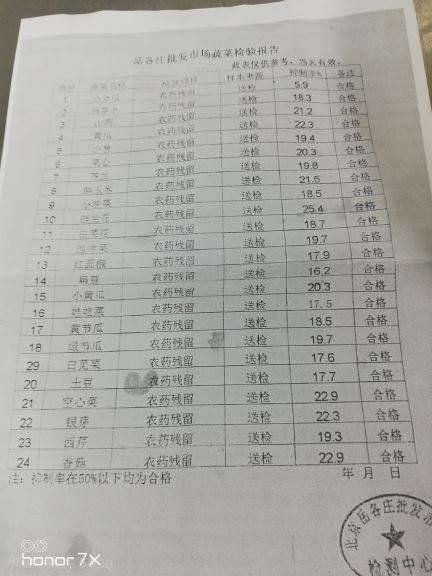 岳各庄批发市场蔬菜检验报告
此表仅供参考，当天有效。
编号 蔬菜名称 检测项目 样本来源 抑制率% 备注
1 农药残留 送检 5.9 合格
2 农药残留 送检 18.3 合格
3 农药残留 送检 21.2 合格
4 黄瓜 农药残留 送检 22.3 合格
5 农药残留 送检 19.4 合格
6 农药残留 送检 20.3 合格
7 农药残留 送检 19.8 合格
8 农药残留 送检 21.5 合格
9 农药残留 送检 18.5 合格
10 西兰花 农药残留 送检 25.4 合格
11 白菜花 农药残留 送检 18.7 合格
12 西洋菜 农药残留 送检 19.7 合格
13 红圆椒 农药残留 送检 17.9 合格
14 扁豆 农药残留 送检 16.2 合格
15 小黄瓜 农药残留 送检 20.3 合格
16 娃娃菜 农药残留 送检 17.5 合格
17 黄节瓜 农药残留 送检 18.5 合格
18 绿节瓜 农药残留 送检 19.7 合格
29 白苋菜 农药残留 送检 17.6 合格
20 土豆 农药残留 送检 17.7 合格
21 空心菜 农药残留 送检 22.9 合格
22 银芽 农药残留 送检 22.3 合格
23 西芹 农药残留 送检 19.3 合格
24 香菇 农药残留 送检 22.9 合格
注：抑制率在50%以下均为合格 年 月 日
北京岳各庄批发市
检测中心
honor 7X